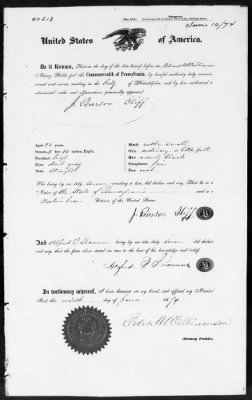 40213
June 10/74
United States of America.
Be it Known, That on the day of the date hereof before me
Notary Public for the Commonwealth of Pennsylvania, by lawful authority duly commissioned
and sworn, residing in the City of Philadelphia, and by law authorized to
administer oaths and affirmations personally appeared
J. Pearson Iliff
Aged
5 10 inches, Eng's
high
dark gray
straight
Mouth small
Chin ordinary a little full
Hair nearly black
Complexion fair
Face oval
Who being by me duly sworn according to law, did declare and say, That he is a
Native of the State of Pennsylvania and a
Native born Citizen of the United States
J. Pearson Iliff
And Alfred being by me also duly sworn did declare
and say, that the facts above stated are true to the best of his knowledge and belief.
Alfred
In testimony whereof, I have hereunto set my hand, and affixed my Notarial
Seal this ninth day of June 1874
Williamson
Notary Public.